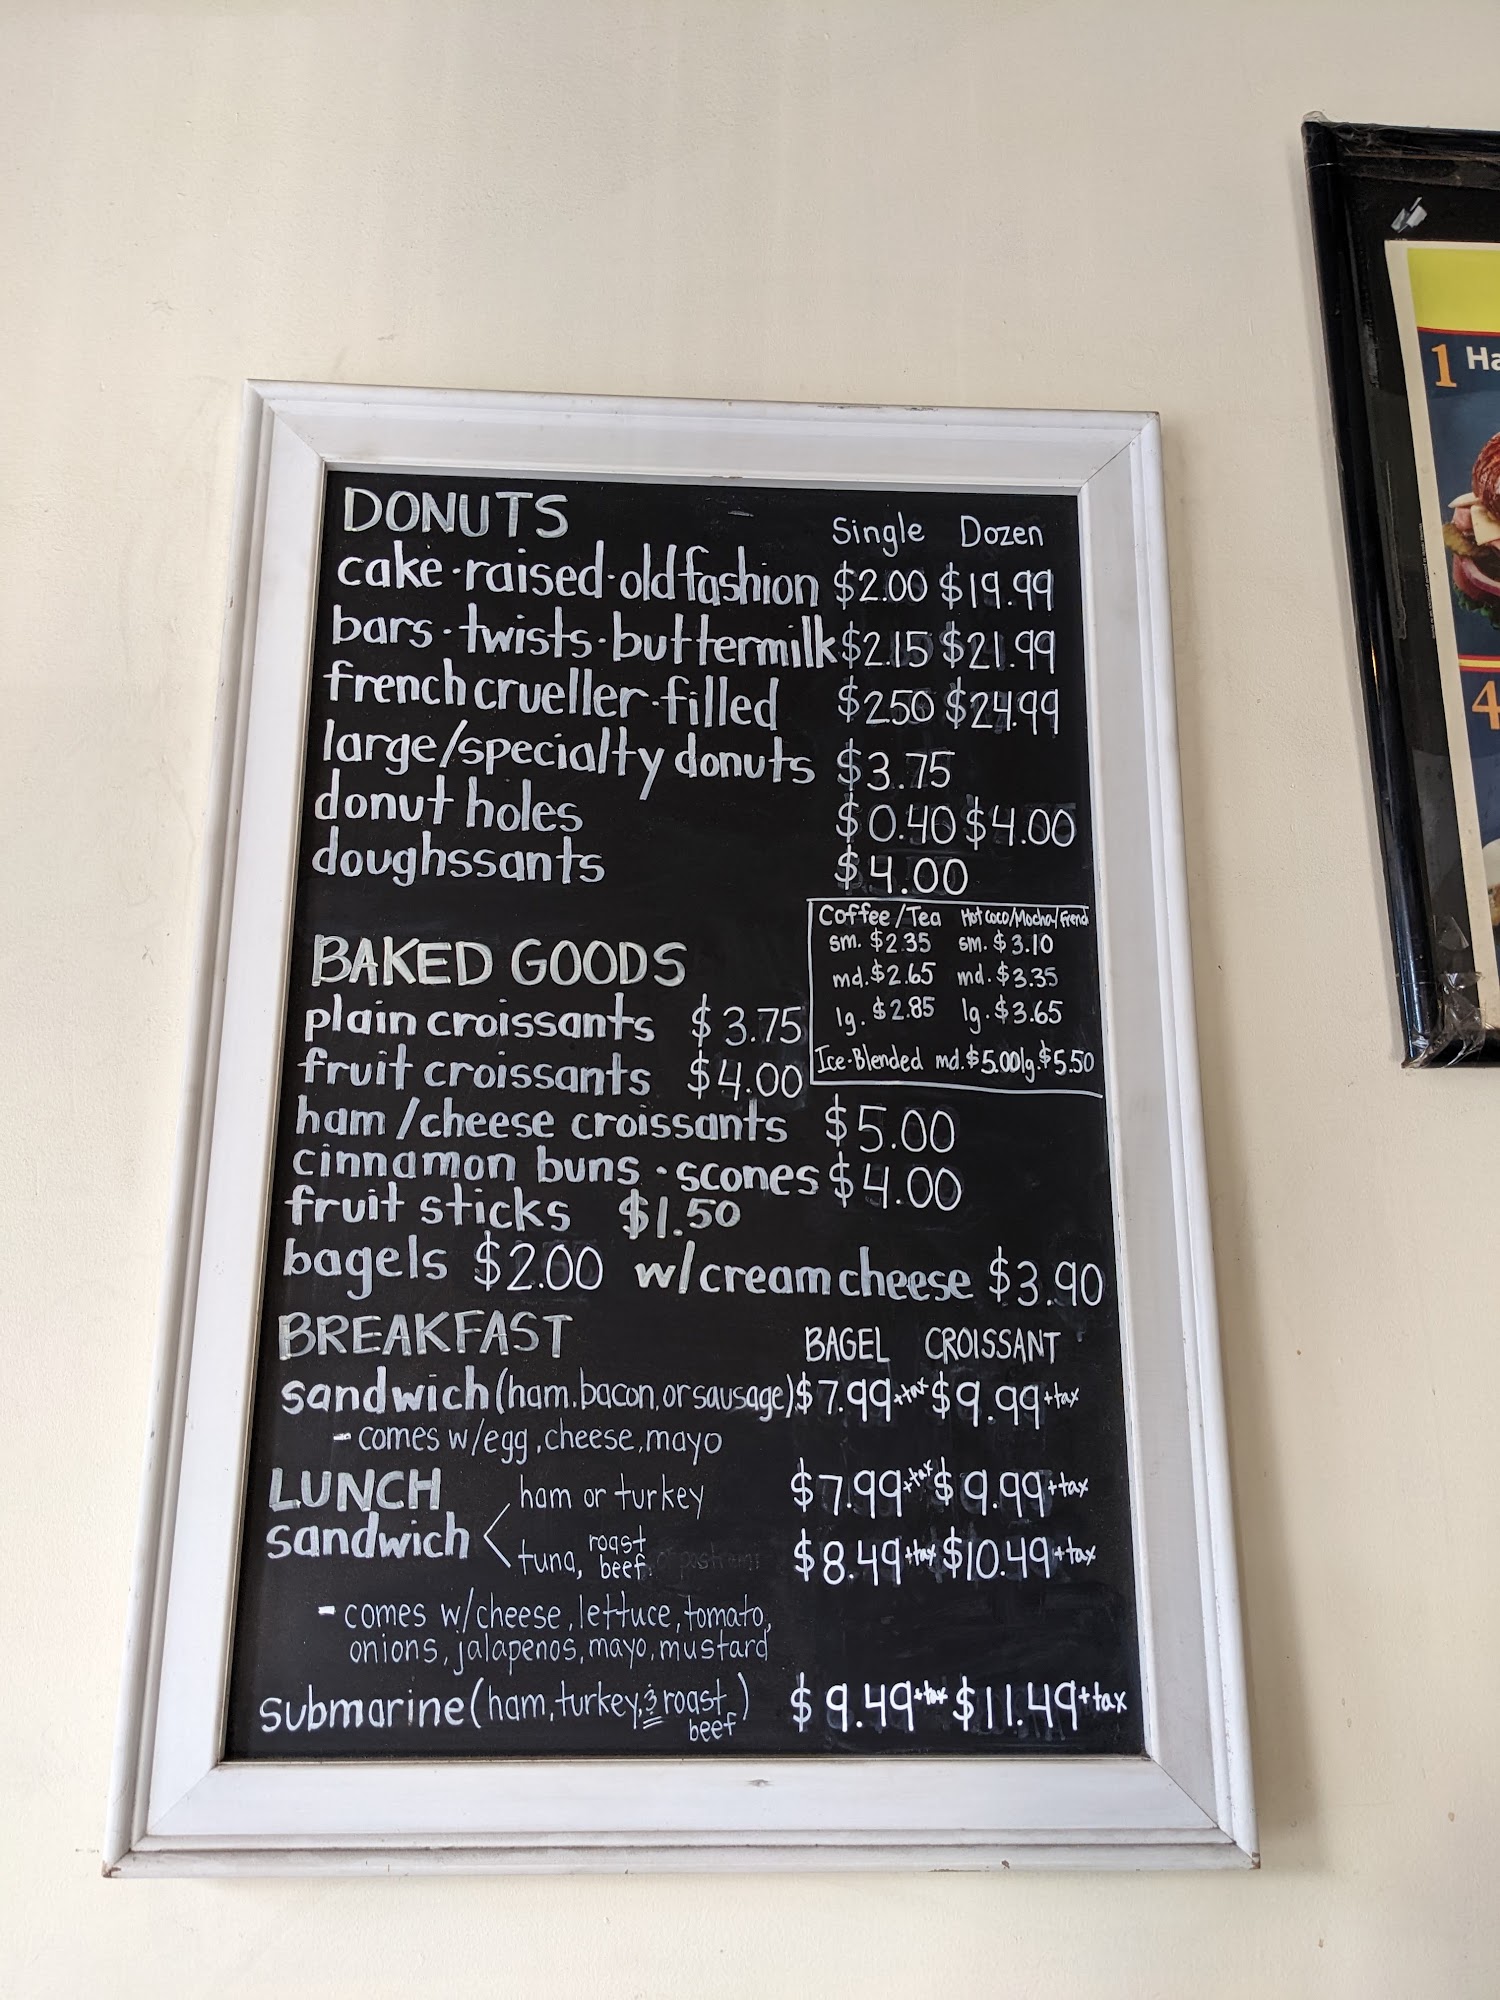 DONUTS Single Dozen
cake · raised · old fashion $2.00 $19.99
bars · twists · buttermilk $2.15 $21.99
french crueller · filled $2.50 $24.99
large/specialty donuts $3.75
donut holes $0.40 $4.00
doughssants $4.00
Coffee/Tea Hot coco/Mocha/Frend
sm. $2.35 sm. $3.10
md. $2.65 md. $3.35
lg. $2.85 lg. $3.65
Ice-Blended md. $5.00 lg. $5.50
BAKED GOODS
plain croissants $3.75
fruit croissants $4.00
ham/cheese croissants $5.00
cinnamon buns · scones $4.00
fruit sticks $1.50
bagels $2.00 w/cream cheese $3.90
BREAKFAST BAGEL CROISSANT
sandwich (ham, bacon, or sausage) $7.99+tax $9.99+tax
- comes w/egg, cheese, mayo
LUNCH
sandwich
ham or turkey $7.99+tax $9.99+tax
tuna, roast beef $8.49+tax $10.49+tax
- comes w/cheese, lettuce, tomato,
onions, jalapenos, mayo, mustard
submarine (ham, turkey, & roast beef) $9.49+tax $11.49+tax
1 Ha
4